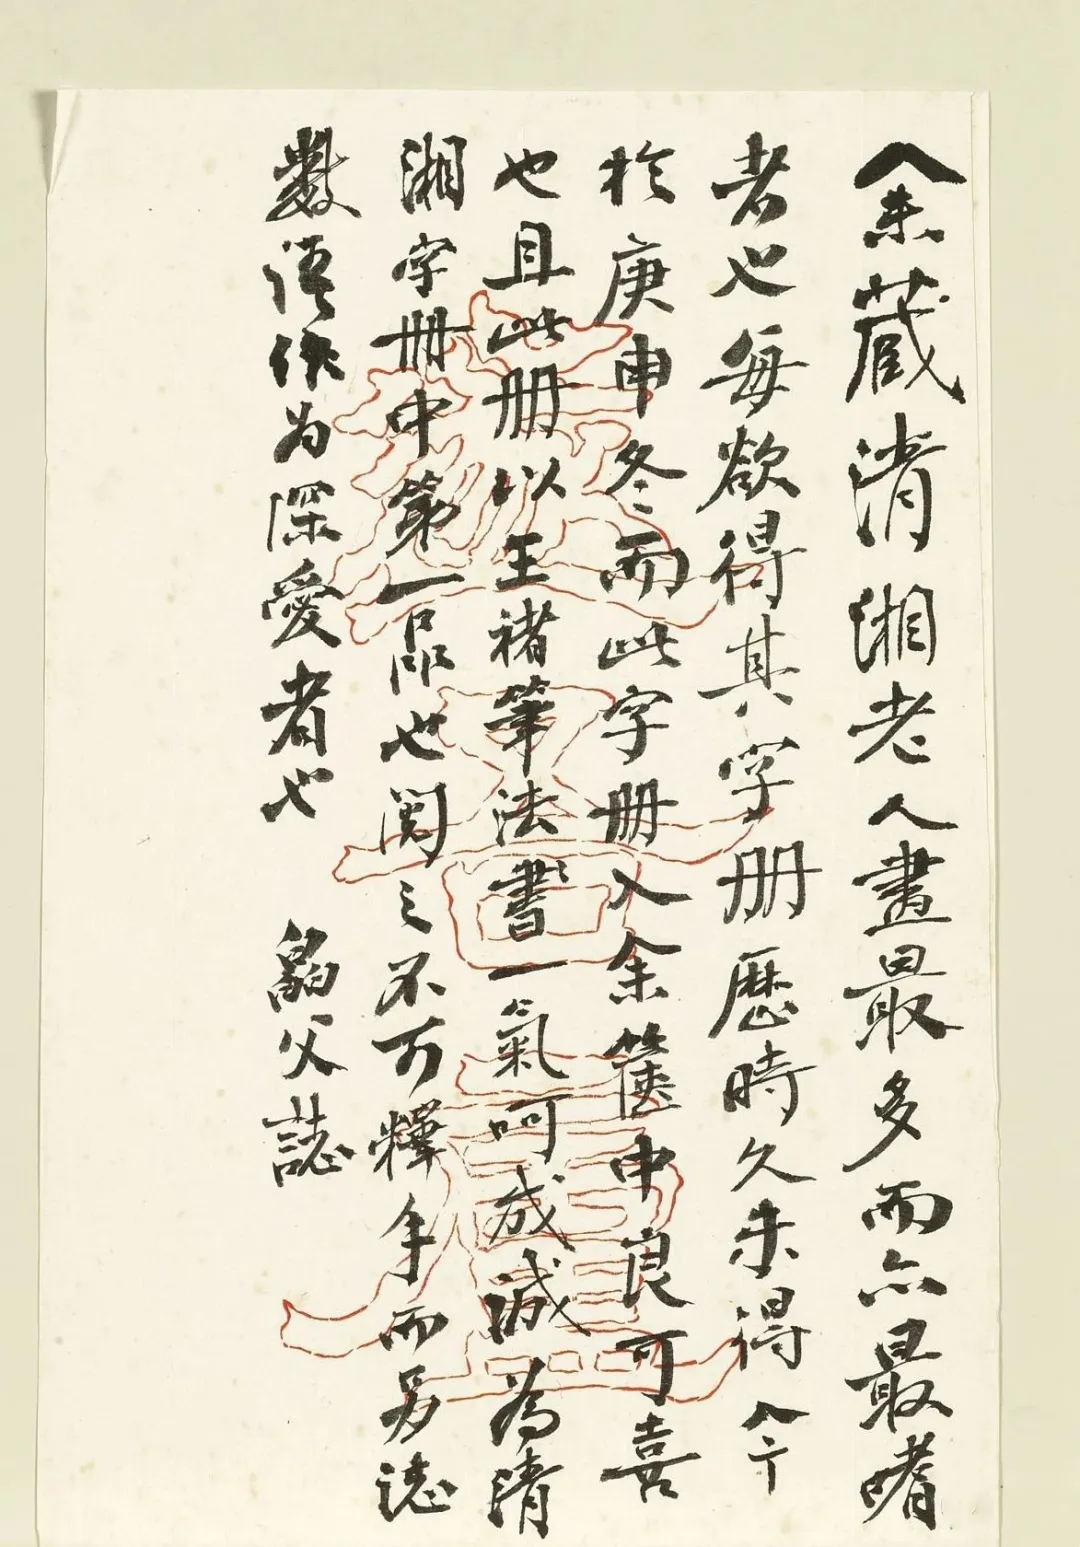 余藏清湘老人畫最多而亦最嗜
者也每欲得其字册歷時久未得今
於庚申冬而此字册入余篋中良可喜
也且此册以王褚筆法書一氣呵成誠為清
湘字册中第一品也閱之不可釋手而另誌
數語作為深愛者也 父誌